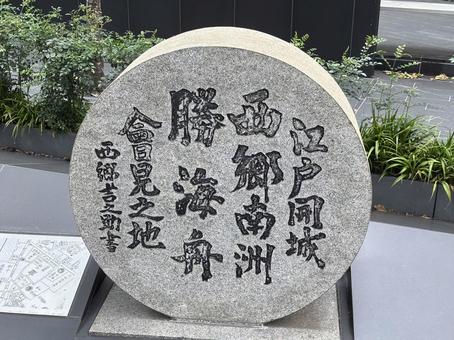 江戸開城
西郷南洲
勝海舟
會見之地
西郷吉之助書